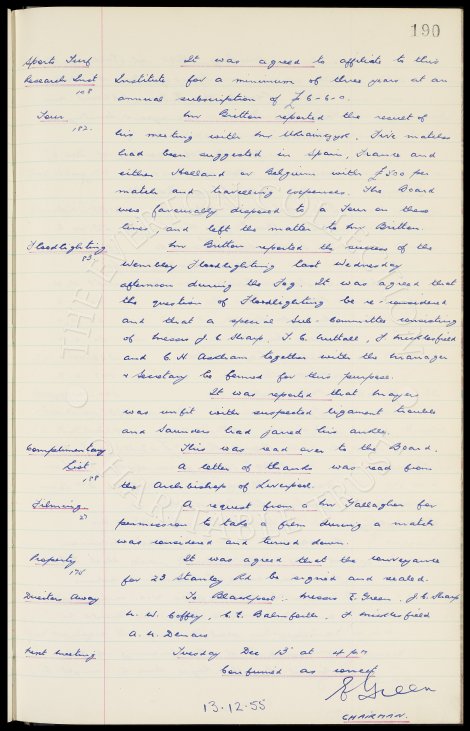 190
Sports Turf It was agreed to affiliate to this
Research Inst Institute for a minimum of three years at an
108 annual subscription of £6-6-0.
Tour Mr Britton reported the result of
182. his meeting with Mr. Five matches
had been suggested in Spain, France and
either Holland or Belgium with £500 per
match and travelling expenses. The Board
were favourably disposed to a Tour on these
lines, and left the matter to Mr Britton.
Floodlighting Mr Britton reported the success of the
83 Wembley Floodlighting last Wednesday
afternoon during the Fog. It was agreed that
the question of Floodlighting be re-considered
and that a special Sub-Committee consisting
of Messrs J. C. Sharp, T. C. Nuttall, F Micklesfield
and C H Askham together with the Manager
& Secretary be formed for this purpose.
It was reported that Mayers
was unfit with suspected ligament trouble
and Saunders had jarred his ankle.
Complimentary This was read over to the Board.
List A letter of thanks was read from
188 the Archbishop of Liverpool.
Filming A request from a Mr Gallagher for
27 permission to take a film during a match
was considered and turned down.
Property It was agreed that the conveyance
170 for 23 Stanley Rd be signed and sealed.
Directors Away To Blackpool: Messrs E. Green, J. C. Sharp
N. W. Coffey, C. E. Balmforth, F Micklesfield
A. H. Denaro
Next Meeting Tuesday Dec 13th at 4 pm
Confirmed as correct
E Green
13-12-55 CHAIRMAN.
THE EVERTON COLLECTION
© CHARITABLE TRUST